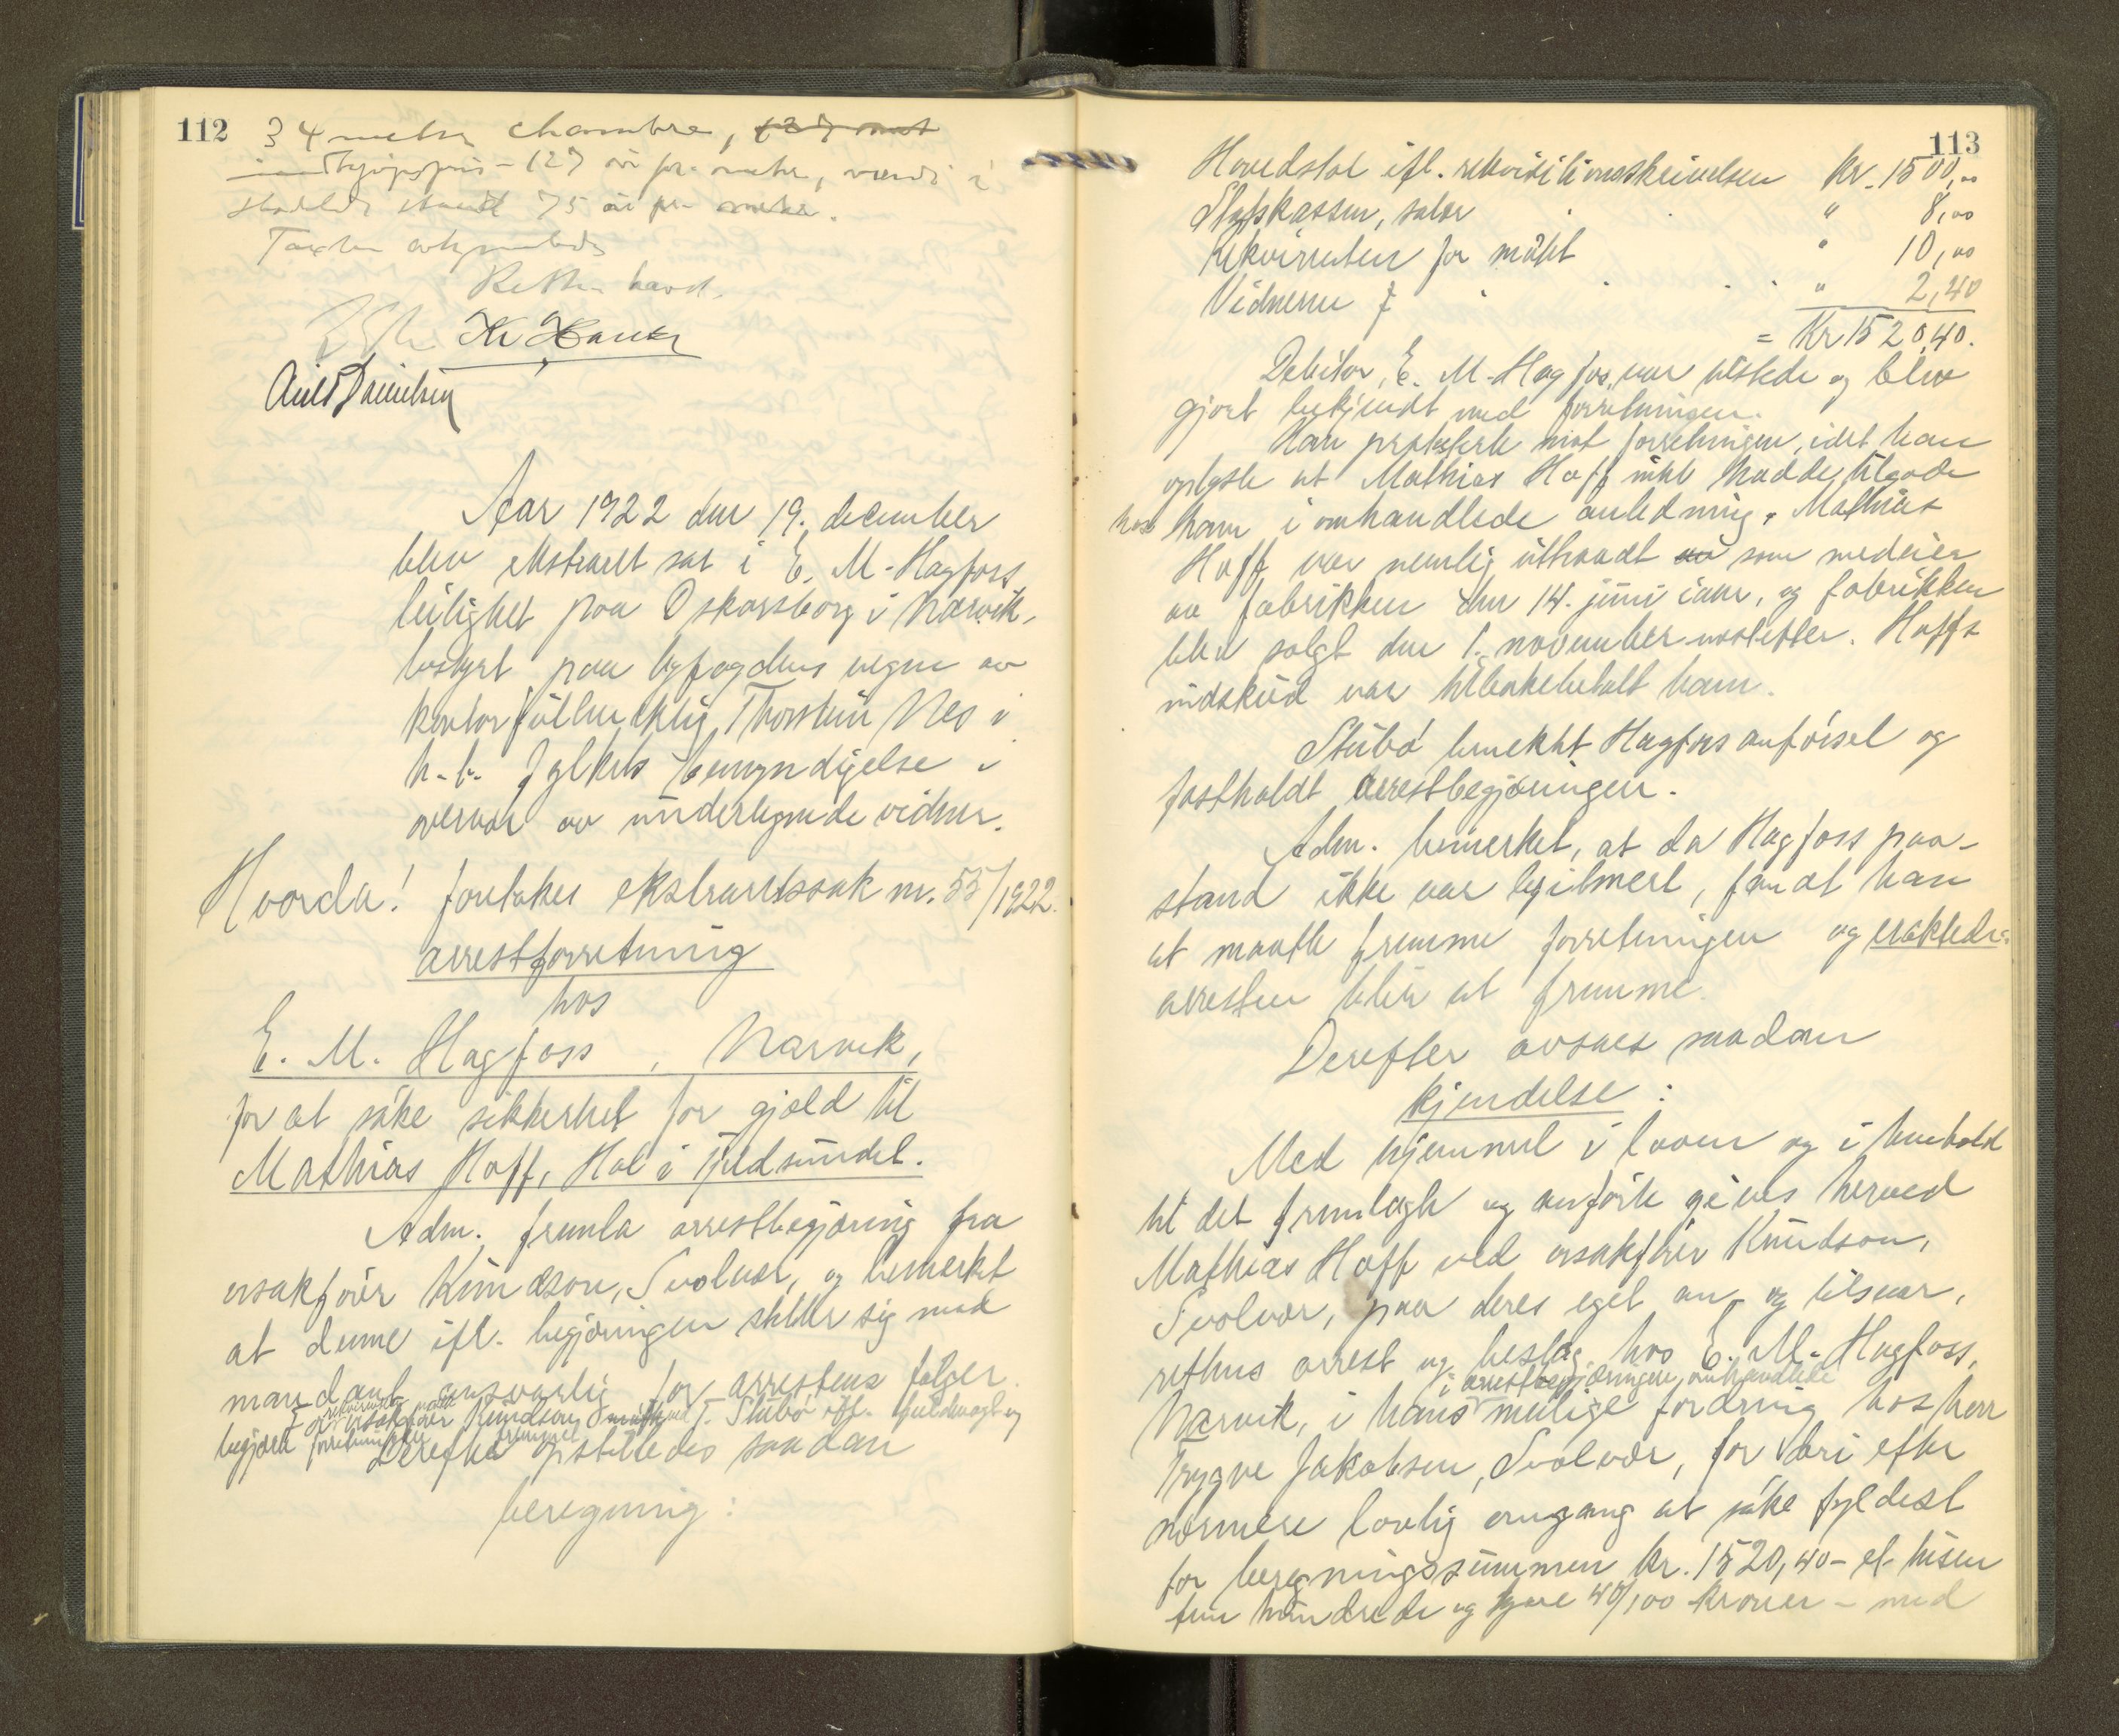 112
34 meter chambre,
indkjøpspris - 127 øre pr. meter, værdi i
skadet stand 75 øre pr. meter.
Taxten avhjemledes
Retten hævet.
Arild Danielsen
Aar 1922 den 19. december
blev ekstraret sat i E. M. Hagfoss
leilighet paa Oskarsborg i Narvik,
bestyrt paa byfogdens vegne av
kontorfuldmektig Thorstein Nes i
h. t. fylkets bemyndigelse i
overvær av undertegnede vidner.
Hvorda! foretokes ekstraretssak nr. 55/1922.
arrestforretning
hos
E. M. Hagfoss, Narvik,
for at søke sikkerhet for gjæld til
Mathias Hoff, Hol i Tjeldsundet.
Adm. fremla arrestbegjæring fra
orsakfører Knudson, Svolvær, og bemerket
at denne ifl. begjæringen stiller sig med
mandant ansvarlig for arrestens følger.
For orsakfører Knudson møtte J. Stubø ifl. fuldmagt og
begjærte forretningen fremmet
Derefter opstilledes saadan
beregning:
113
Hovedstol ifl. rekvisitionsskrivelsen Kr. 1500,00
Statskassen, salær " 8,00
Rekvirenten for møtet " 10,00
Vidnerne " 2,40
= Kr 1520,40.
Debitor, E. M. Hagfos, var tilstede og blev
gjort bekjendt med forretningen.
Han protesterte mot forretningen, idet han
oplyste at Mathias Hoff intet hadde tilgode
hos ham i omhandlede anledning. Mathias
Hoff var nemlig uttraadt som medeier
av fabrikken den 14. juni iaar, og fabrikken
blev solgt den 1. november næstefter. Hoffs
indskud var tilbakebetalt ham.
Stubø benektet Hagfoss anførsel og
fastholdt arrestbegjæringen.
Adm. bemerket, at da Hagfoss paa-
stand ikke var legitimert, fandt han
at maatte fremme forretningen og eraktedes
arresten blir at fremme.
Derefter avsaes saadan
kjendelse:
Med hjemmel i loven og i henhold
til det fremlagte og anførte gives herved
Mathias Hoff ved orsakfører Knudson,
Svolvær, paa deres eget an- og tilsvar,
rettens arrest og beslag hos E. M. Hagfoss,
i arrestbegjæringen omhandlede
Narvik, i hans mulige fordring hos herr
Trygve Jakobsen, Svolvær, for deri efter
nærmere lovlig omgang at søke fyldest
for beregningssummen kr. 1520,40 - et tusen
fem hundrede og tyve 40/100 kroner - med